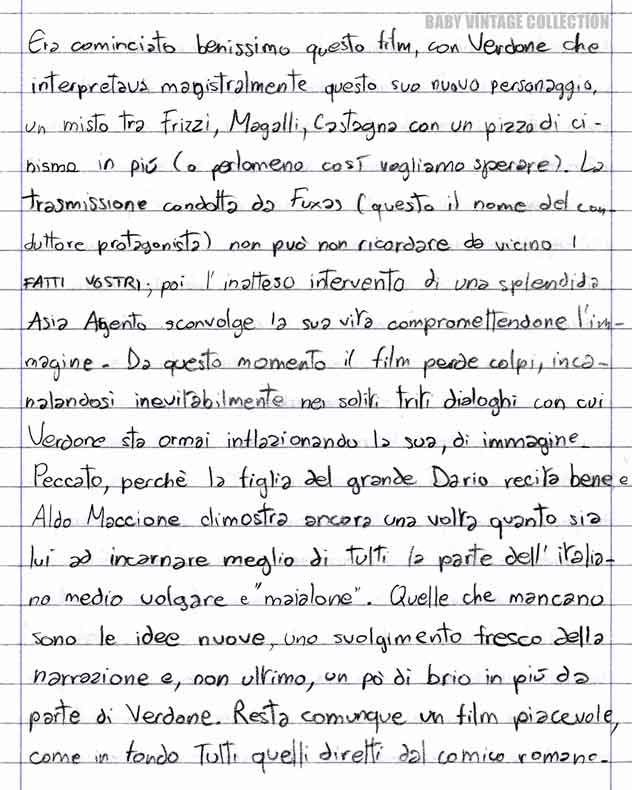 BABY VINTAGE COLLECTION
Era cominciato benissimo questo film, con Verdone che
interpretava magistralmente questo suo nuovo personaggio,
un misto tra Frizzi, Magalli, Castagna con un pizzo di ci-
nismo in più (o perlomeno così vogliamo sperare). La
trasmissione condotta da Fuxas (questo il nome del con-
duttore protagonista) non può non ricordare da vicino I
FATTI VOSTRI; poi l'inatteso intervento di una splendida
Asia Agento sconvolge la sua vita compromettendone l'im-
magine. Da questo momento il film perde colpi, inca-
nalandosi inevitabilmente nei soliti triti dialoghi con cui
Verdone sta ormai inflazionando la sua, di immagine.
Peccato, perchè la figlia del grande Dario recita bene e
Aldo Maccione dimostra ancora una volta quanto sia
lui ad incarnare meglio di tutti la parte dell'italia-
no medio volgare e "maialone". Quelle che mancano
sono le idee nuove, uno svolgimento fresco della
narrazione e, non ultimo, un pò di brio in più da
parte di Verdone. Resta comunque un film piacevole,
come in fondo tutti quelli diretti dal comico romano.